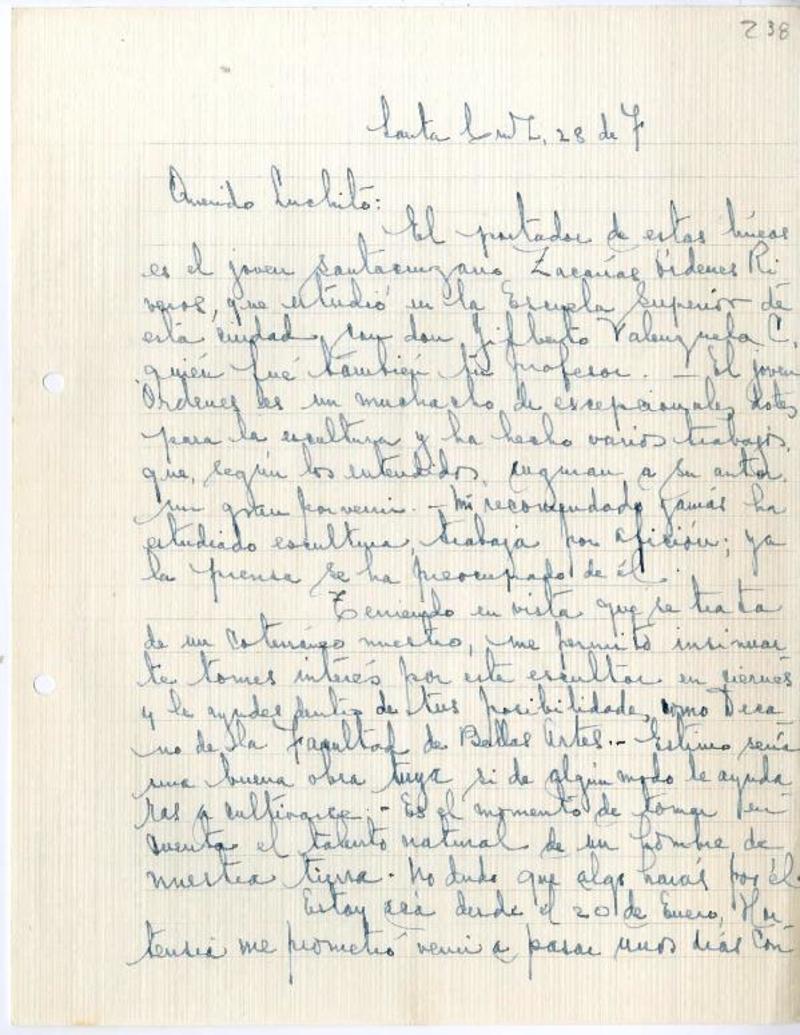 238
Santa Cruz, 28 de F
Querido Luchito:
El portador de estas líneas
es el joven santacruzano Zacarías Órdenes Ri
veros, que estudió en la Escuela Superior de
esta ciudad, con don Gilberto Valenzuela C.
quién fué también tu profesor. — El joven
Ordenes es un muchacho de excepcionales dotes
para la escultura y ha hecho varios trabajos,
que, según los entendidos, auguran a su autor
un gran porvenir. — Mi recomendado jamás ha
estudiado escultura, trabaja por afición; ya
la prensa se ha preocupado de él.
Teniendo en vista que se trata
de un coterráneo nuestro, me permito insinuar
te tomes interés por este escultor en ciernes
y le ayudes dentro de tus posibilidades, como Deca
no de la Facultad de Bellas Artes. - Estimo sería
una buena obra tuya si de algún modo le ayuda
ras a cultivarse. - Es el momento de tomar en
cuenta el talento natural de un hombre de
nuestra tierra. No dudo que algo harás por él.
Estoy acá desde el 20 de Enero, Hor
tensia me prometió venir a pasar unos días con